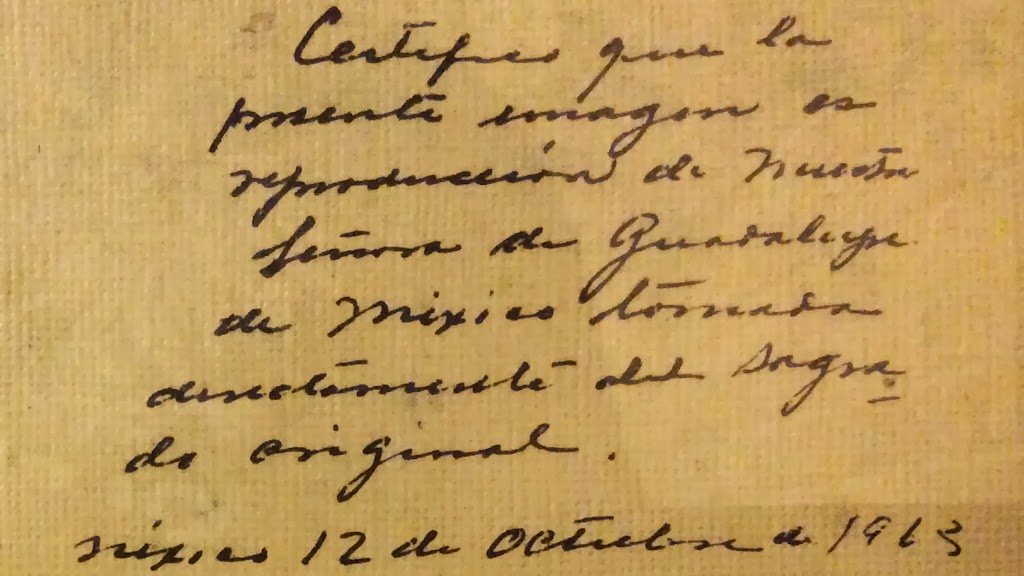 Certifico que la
presente imagen es
reproducción de Nuestra
Señora de Guadalupe
de México tomada
directamente del sagra-
do original.
México 12 de Octubre de 1963